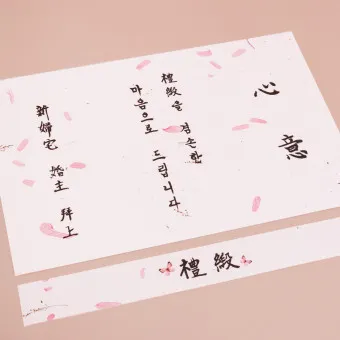 心意
禮緞을 겸손한
마음으로 드립니다
新婦宅 婚主 拜上
禮緞